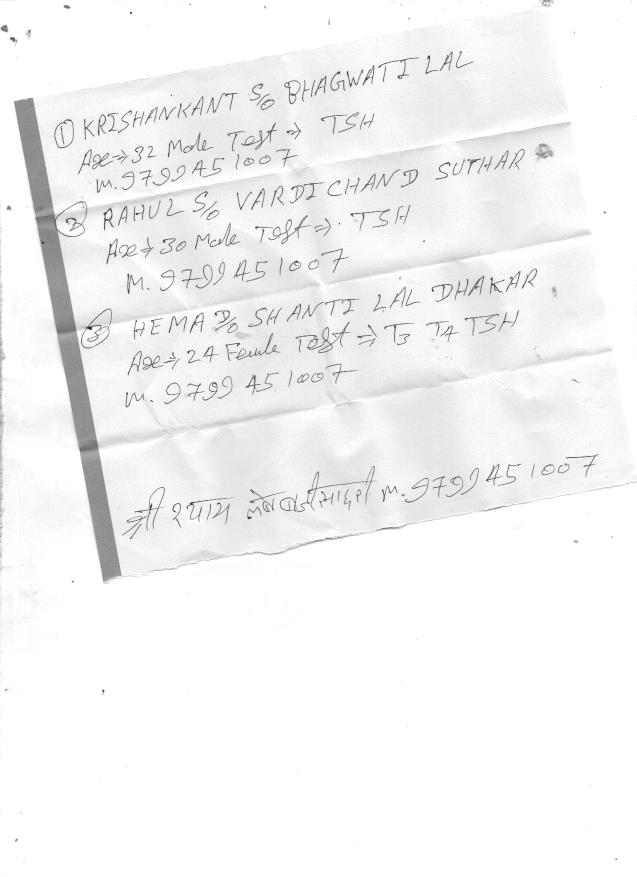 ① KRISHANKANT S/o BHAGWATI LAL
Age⇒32 Male Test⇒ TSH
M. 9799451007
② RAHUL S/o VARDICHAND SUTHAR
Age⇒30 Male Test⇒ TSH
M. 9799451007
③ HEMA D/o SHANTI LAL DHAKAR
Age⇒24 Female Test⇒ T3 T4 TSH
M. 9799451007
श्री श्याम लेब M. 9799451007